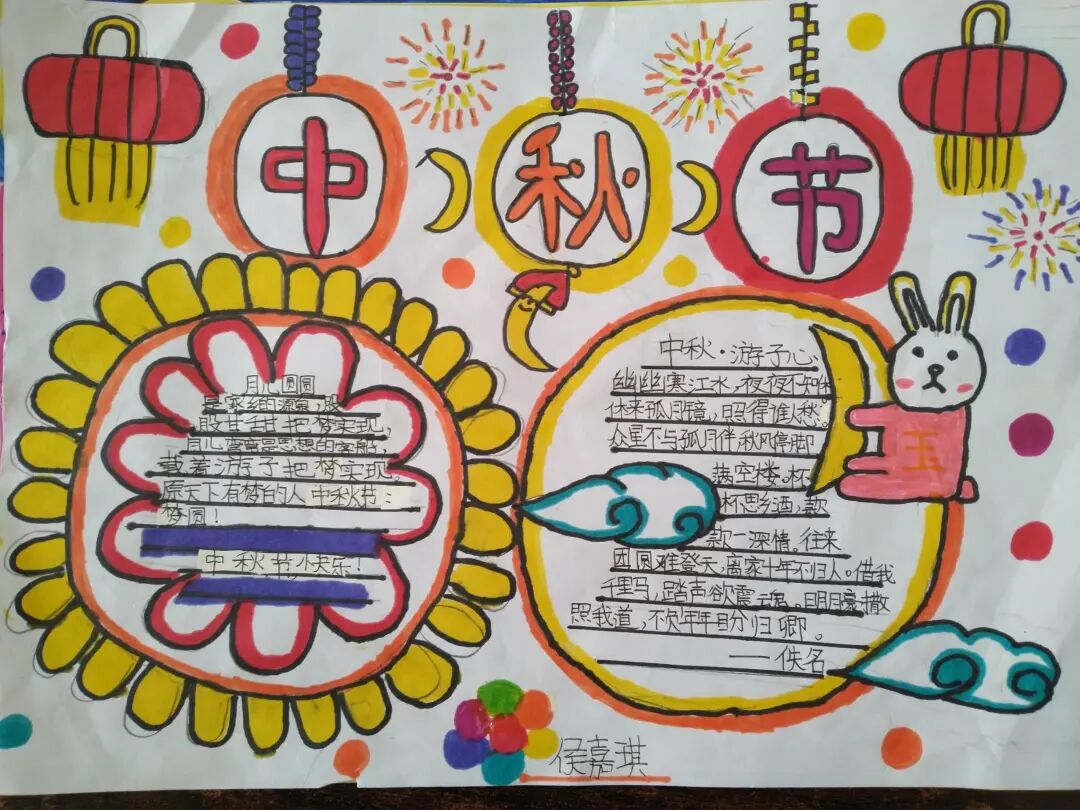 中秋节
月儿圆圆
是家乡的源泉,
敢甘甜把梦实现,
月儿弯弯是思想的客船,
载着游子把梦实现。
愿天下有梦的人中秋节:
梦圆!
中秋节小快乐!
中秋·游子心
幽幽寒江水,夜夜不知
休来孤月镜,照得谁人愁。
众星不与孤月伴秋风停脚
空楼。杯
杯思乡酒,款
款一深情。往来
团圆难登天,离家十年不归人。借我
千里马,踏声欲震魂。明月豪撒
照我道,不欠年年目分归卿。
——佚名
玉
侯嘉琪